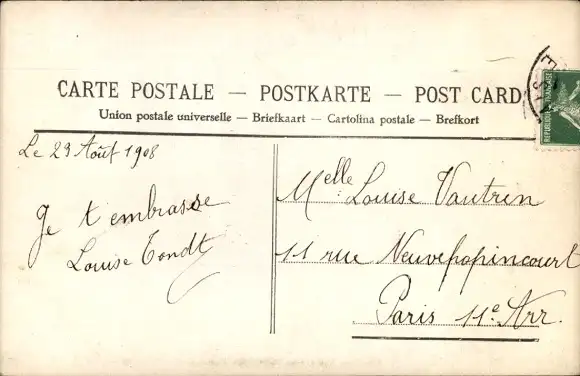 CARTE POSTALE — POSTKARTE — POST CARD
Union postale universelle — Briefkaart — Cartolina postale — Brefkort
Le 23 Août 1908
Je t'embrasse
Louise Tondt
Melle Louise Vautrin
11 rue Neuvepopincourt
Paris 11e Arr.
REPUBLIQUE FRANÇAISE